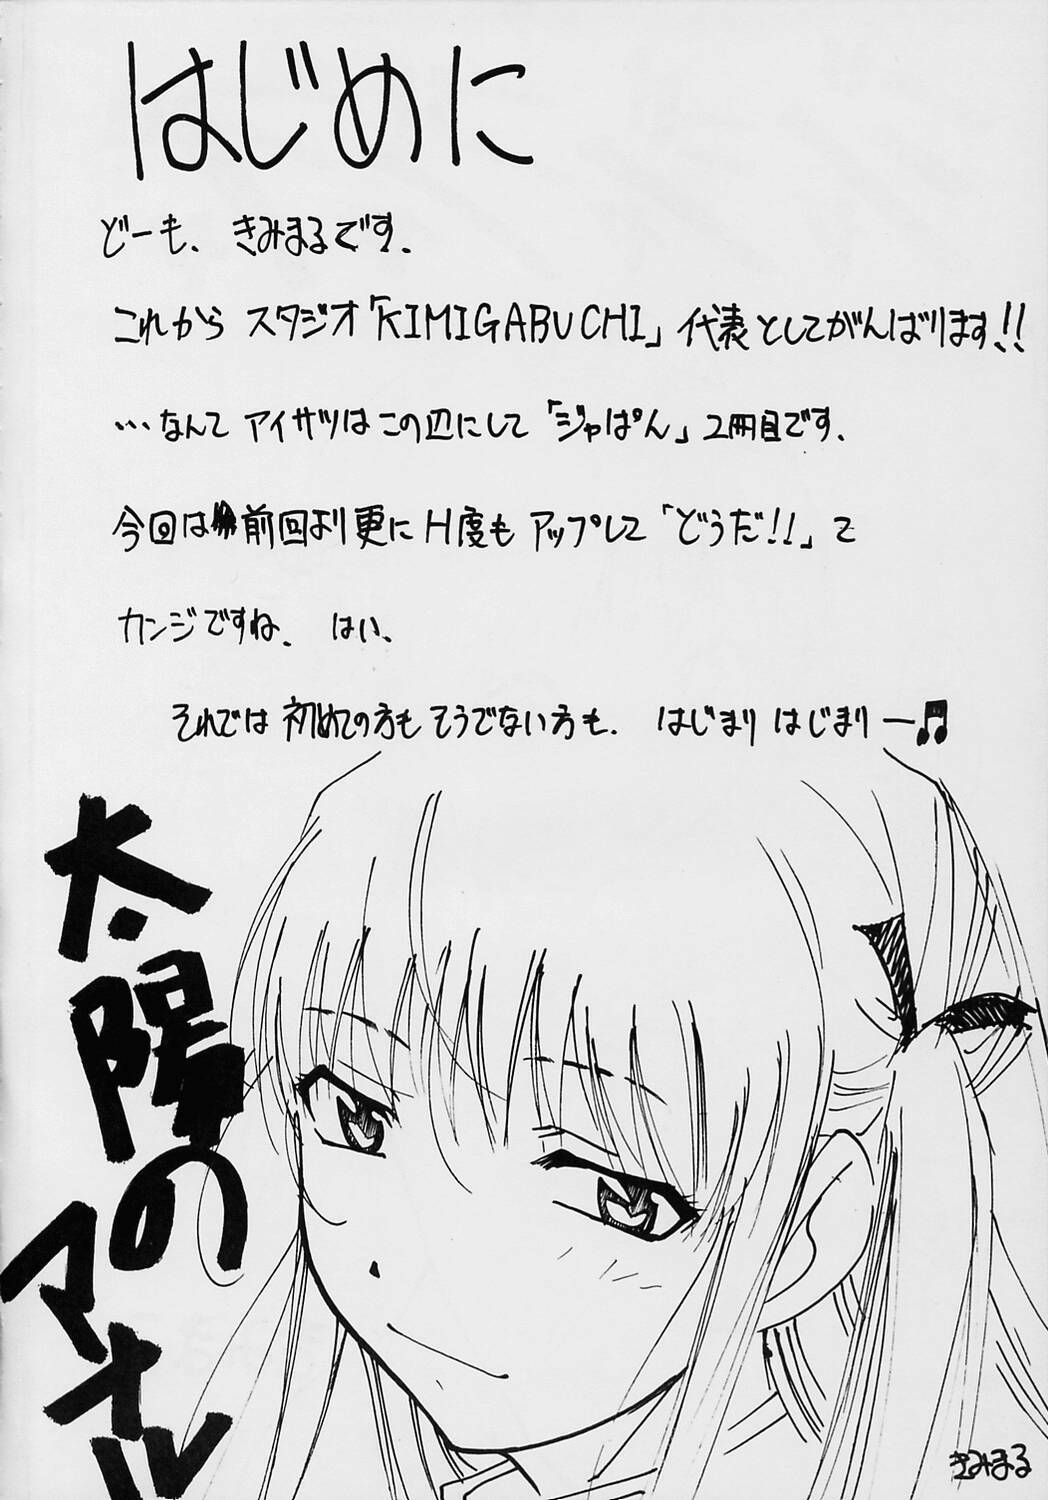 はじめに
どーも、きみまるです。
これから スタジオ「KIMIGABUCHI」代表としてがんばります!!
…なんて アイサツはこの辺にして「ジャぱん」2冊目です。
今回は前回より更にH度もアップして「どうだ!!」て
カンジですね。 はい。
それでは 初めての方も そうでない方も。 はじまり はじまりー♫
太陽の
マオル
きみまる